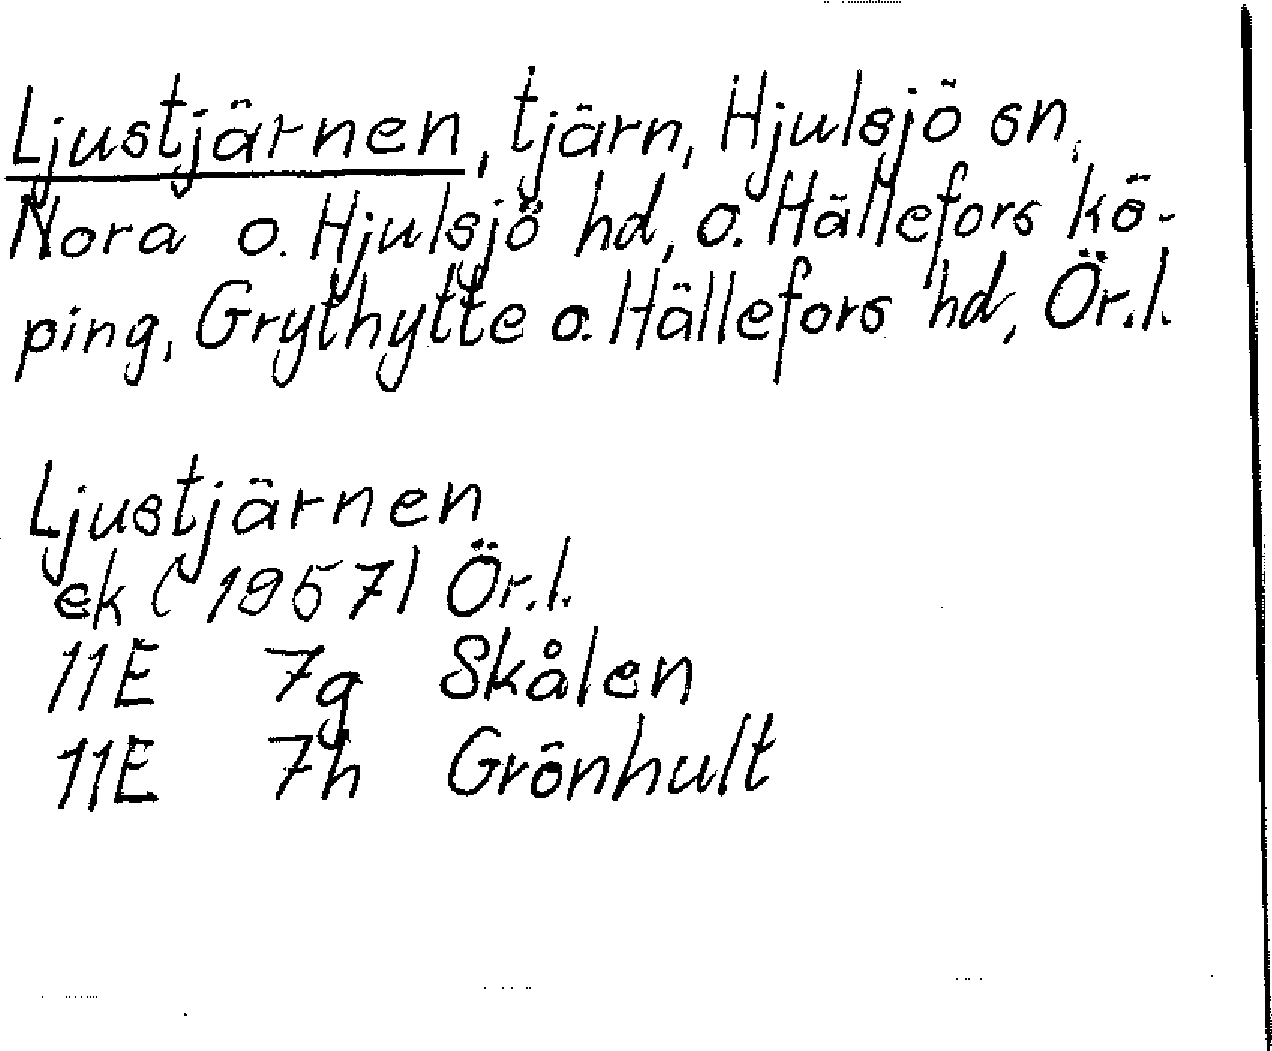 Ljustjärnen, tjärn, Hjulsjö sn,
Nora o. Hjulsjö hd, o. Hällefors kö-
ping, Grythytte o. Hällefors hd, Ör.l.
Ljustjärnen
ek (1957) Ör.l.
11E 7g Skålen
11E 7h Grönhult